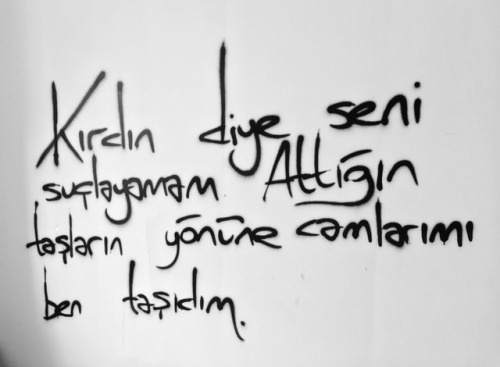 Kırdın diye seni
suçlayamam Attığın
taşların yönüne camlarımı
ben taşıdım.